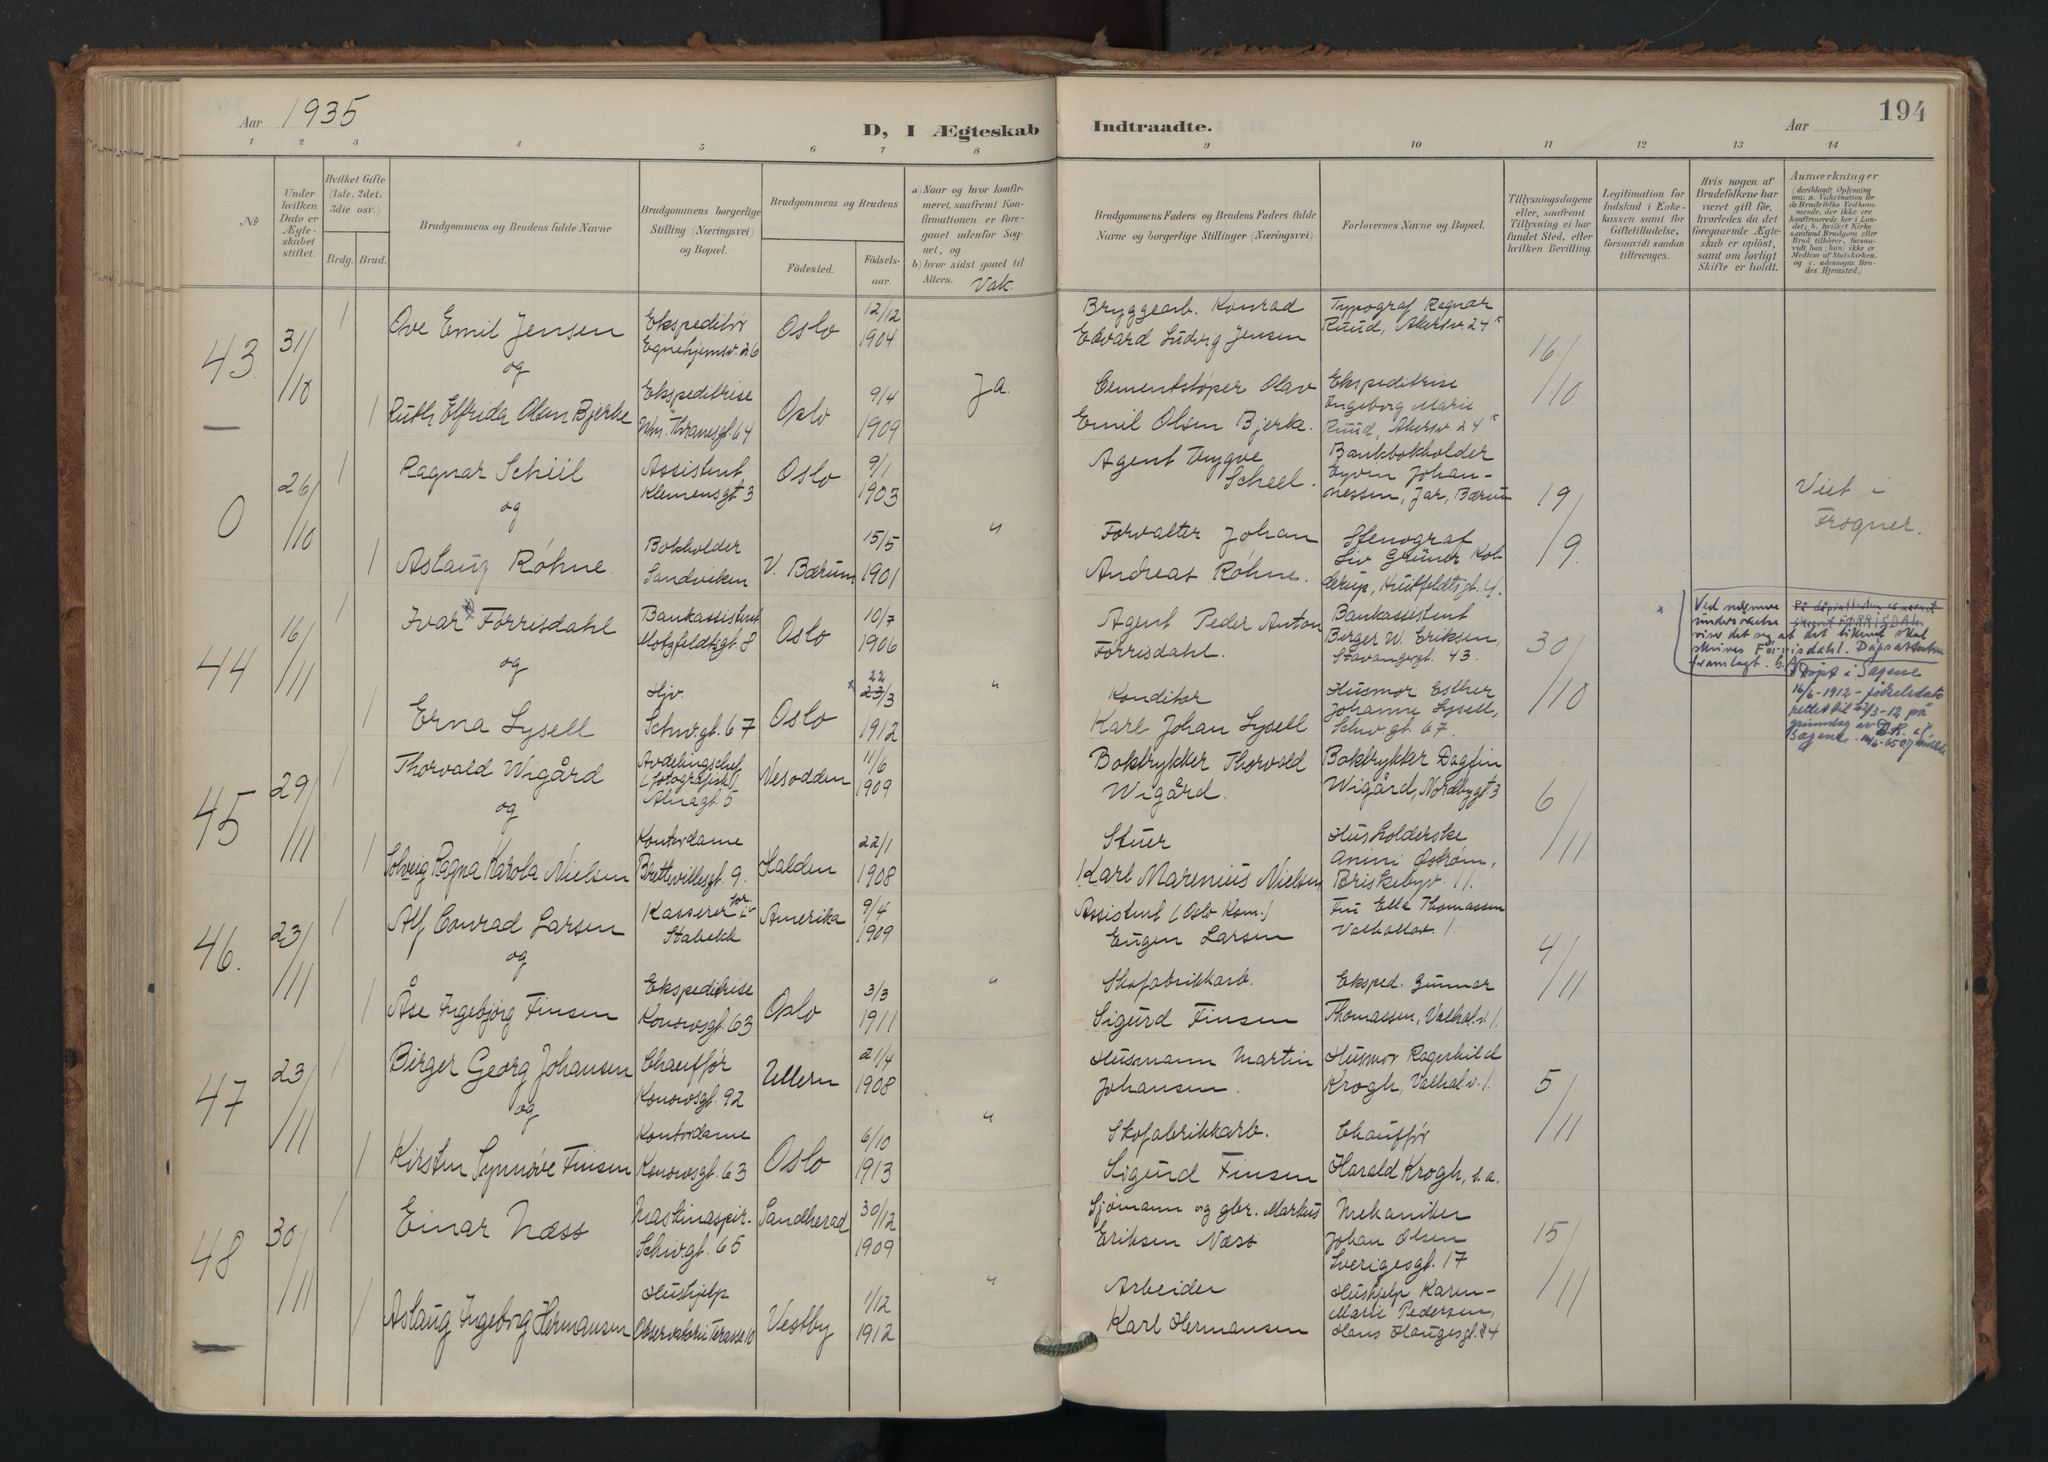 Aar 1935
D, I Ægteskab Indtraadte.
Aar 194
1 2 3 4 5 6 7 8 9 10 11 12 13 14
No
Under hvilken Dato er Ægteskabet stiftet.
Hvilket Gifte (1ste, 2det, 3die osv.)
Brdg. Brud.
Brudgommens og Brudens fulde Navne
Brudgommens borgerlige Stilling (Næringsvei) og Bopæl.
Brudgommens og Brudens
Födested. Födsels-aar.
a) Naar og hvor konfirmeret, saafremt Konfirmationen er foregaaet udenfor Sognet, og
b) hvor sidst gaaet til Alters. Vak.
Brudgommens Faders og Brudens Faders fulde Navne og borgerlige Stillinger (Næringsvei)
Forlovernes Navne og Bopæl.
Tillysningsdagene eller, saafremt Tillysning ei har fundet Sted, efter hvilken Bevilling.
Legitimation for Indskud i Enkekassen samt for Giftetilladelse, forsaavidt saadan tiltrænges.
Hvis nogen af Brudefolkene har været gift för, hvorledes da det foregaaende Ægteskab er oplöst, samt om lovligt Skifte er holdt.
Anmærkninger
43. 31/10 1 Ove Emil Jensen Ekspeditør Egnehjemsv. 26 Oslo 12/12 1904 Bryggearb. Konrad Edvard Ludvig Jensen Typograf Ragnar Ruud, Akersv. 24 16/10
og
1 Ruth Elfrida Olsen Bjerke Ekspeditrise Wm. Thranesgt. 64 Oslo 9/4 1909 Ja. Cementstøper Olav Emil Olsen Bjerke. Ekspeditrise Ingeborg Marie Ruud, Akersv. 24
0 26/10 1 Ragnar Scheel Assistent Klemensgt 3 Oslo 9/1 1903 Agent Trygve Scheel. Bankbokholder Eyvin Johannessen, Jar, Bærum 19/9. Viet i Frogner.
og
1 Aslaug Røhne. Bokholder Sandviken V. Bærum 15/5 1901 " Forvalter Johan Andreas Røhne. Stenograf Liv Grüner Kolderup, Huitfeldtsgt. 4.
44 16/11 1 Ivar Førrisdahl Bankassistent Motzfeldtsgt 8 Oslo 10/7 1906 Agent Peder Anton Førrisdahl. Bankassistent Berger W. Eriksen, Stavangergt. 43. 30/10
og
1 Erna Lysell Hjv. Schw.gt. 67 Oslo 22 23/3 1912 " Konditor Karl Johan Lysell Husmor Esther Johanne Lysell, Schw.gt 67.
x Ved nærmere undersøkelse viser det seg at det likevel skal skrives Førrisdahl. Dåpsattesten framlagt.
Døpt i Sagene 16/6-1912 - fødselsdato rettet til 22/3-12 på grunnlag av
45 29/11 1 Thorvald Wigård Avdelingschef (fotografisk) Alnagt. 5 Nesodden 11/6 1909 Boktrykker Thorvald Wigård. Boktrykker Dagfin Wigård, Nordbygt. 3 6/11
og
1 Solveig Ragna Karola Nielsen Kontordame Brettevillesgt. 9. Halden 22/1 1908 Stuer Karl Marenius Nielsen Husholderske Anni Østrøm, Briskebyv. 11.
46. 23/11 1 Alf Conrad Larsen Kasserer Stabekk Amerika 9/4 1909 Assistent (Oslo Kom.) Eugen Larsen Fru Ella Thomassen Valhallav. 1. 4/11
og
1 Åse Ingebjørg Finsen Ekspeditrise Konowsgt. 63 Oslo 3/3 1911 " Skofabrikkarb. Sigurd Finsen Eksped. Gunnar Thomassen, Valhal.v. 1.
47 23/11 1 Birger Georg Johansen Chauffør Konowsgt. 92 Ullern 21/4 1908 Husmann Martin Johansen. Husmor Ragnhild Krogh, Valhal.v. 1. 5/11
og
1 Kirsten Synnøve Finsen Kontordame Konowsgt. 63 Oslo 6/10 1913 " Skofabrikkarb. Sigurd Finsen Chauffør Harald Krogh, s.a.
48 30/11 1 Einar Næss Maskinaspir. Schw.gt. 65 Sandherad 30/12 1909 Sjømann og gbr. Markus Eriksen Næss Mekaniker Johan Olsen Sverigesgt. 17 15/11
1 Aslaug Ingeborg Hermansen Hushjelp Observatorie Terasse 10 Vestby 1/12 1912 " Arbeider Karl Hermansen Hushjelp Karen-Marie Pedersen, Hans Haugesgt. 4